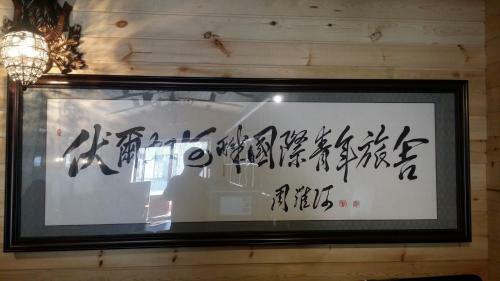 伏爾加河畔國際青年旅舍
周維河